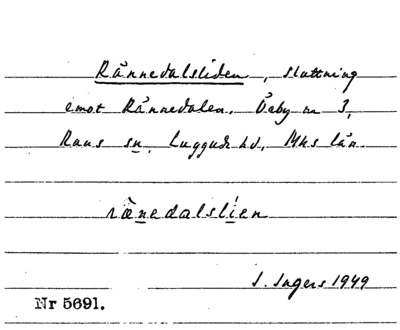 Rånnedalsliden, sluttning
emot Rånnedalen. Örby nr 3,
Raus sn, Luggude hd, Mhs län.
rånedalslien
S. Ingers 1949
Nr 5691.